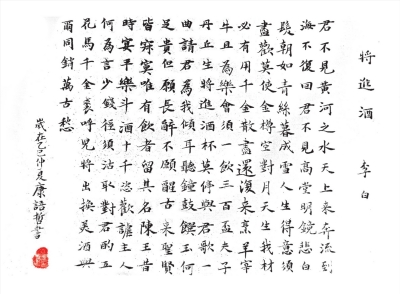 將進酒 李白
君不見黃河之水天上來奔流到
海不復回君不見高堂明鏡悲白
髮朝如青絲暮成雪人生得意須
盡歡莫使金樽空對月天生我材
必有用千金散盡還復來烹羊宰
牛且為樂會須一飲三百盃夫子
丹丘生將進酒杯莫停與君歌一
曲請君為我傾耳聽鐘鼓饌玉何
足貴但願長醉不願醒古來聖賢
皆寂寞唯有飲者留其名陳王昔
時宴平樂斗酒十千恣歡謔主人
何為言少錢徑須沽取對君酌五
花馬千金裘呼兒將出換美酒與
爾同銷萬古愁
歲在乙巳仲夏康語哲書